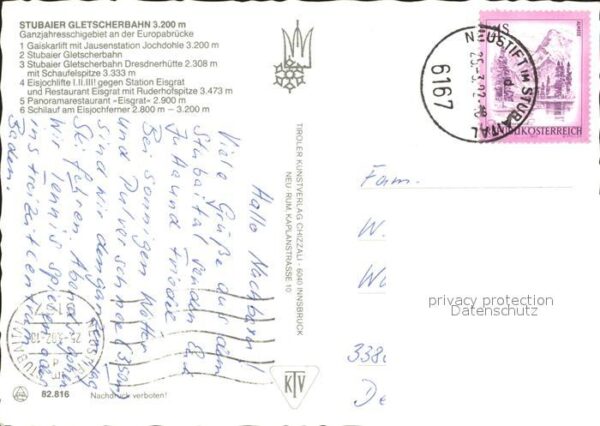 STUBAIER GLETSCHERBAHN 3.200 m
Ganzjahresschigebiet an der Europabrücke
1 Gaiskarlift mit Jausenstation Jochdohle 3.200 m
2 Stubaier Gletscherbahn
3 Stubaier Gletscherbahn Dresdnerhütte 2.308 m
mit Schaufelspitze 3.333 m
4 Eisjochlifte I.II.III! gegen Station Eisgrat
und Restaurant Eisgrat mit Ruderhofspitze 3.473 m
5 Panoramarestaurant »Eisgrat« 2.900 m
6 Schilauf am Eisjochferner 2.800 m – 3.200 m
Hallo Nachbarn!
Viele Grüße aus dem
Stubaital senden Euch
Jutta und Friedel.
Bei sonnigem Wetter
und Pulverschnee (350m)
sind wir den ganzen Tag
Ski fahren. Abends gehen
Wir Tennis spielen oder
ins Freizeitcentrum
Baden.
TIROLER KUNSTVERLAG CHIZZALI · 6040 INNSBRUCK
NEU-RUM, KAPLANSTRASSE 10
KTV
82.816
Nachdruck verboten!
NEUSTIFT IM STUBAITAL
6167
REPUBLIK ÖSTERREICH
Fam.
W.
338
De
privacy protection
Datenschutz